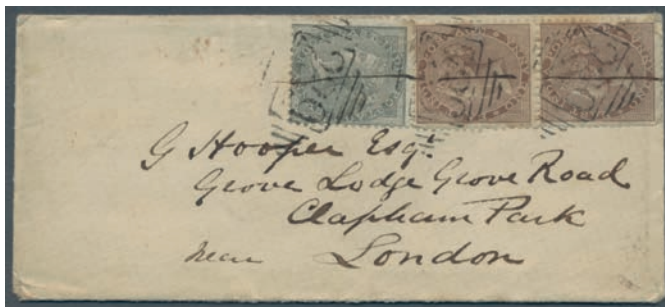 G Hooper Esq.
Grove Lodge Grove Road
Clapham Park
near London